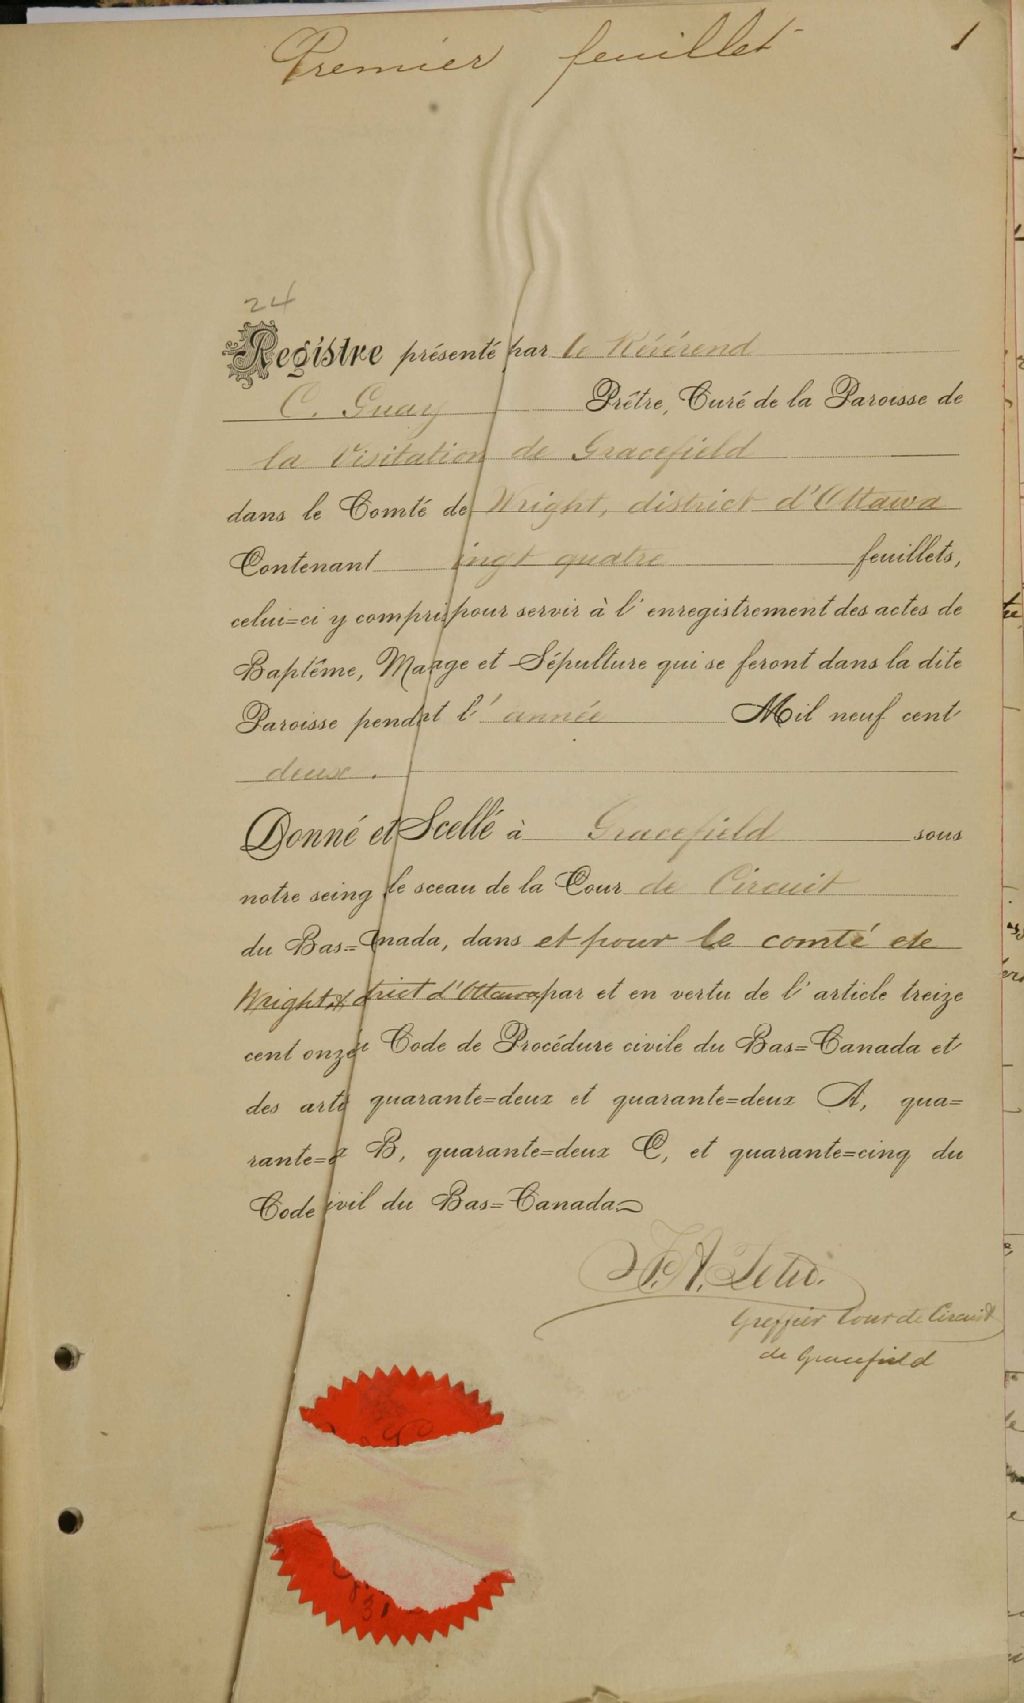 Premier feuillet 1
24
Registre présenté par le Révérend
C. Guay Prêtre, Curé de la Paroisse de
la Visitation de Gracefield
dans le Comté de Wright, district d'Ottawa
Contenant ingt quatre feuillets,
celui=ci y compris pour servir à l'enregistrement des actes de
Baptême, Ma age et Sépulture qui se feront dans la dite
Paroisse pendat l'année Mil neuf cent
deux.
Donné et Scellé à Gracefield sous
notre seing le sceau de la Cour de Circuit
du Bas= nada, dans et pour le comté de
Wright trict d'Ottawa par et en vertu de l'article treize
cent onze Code de Procédure civile du Bas=Canada et
des arti quarante=deux et quarante=deux A, qua=
rante= B, quarante=deux C, et quarante=cinq du
Code ivil du Bas=Canada
F. A.
Greffier Cour de Circuit
de Gracefield
31